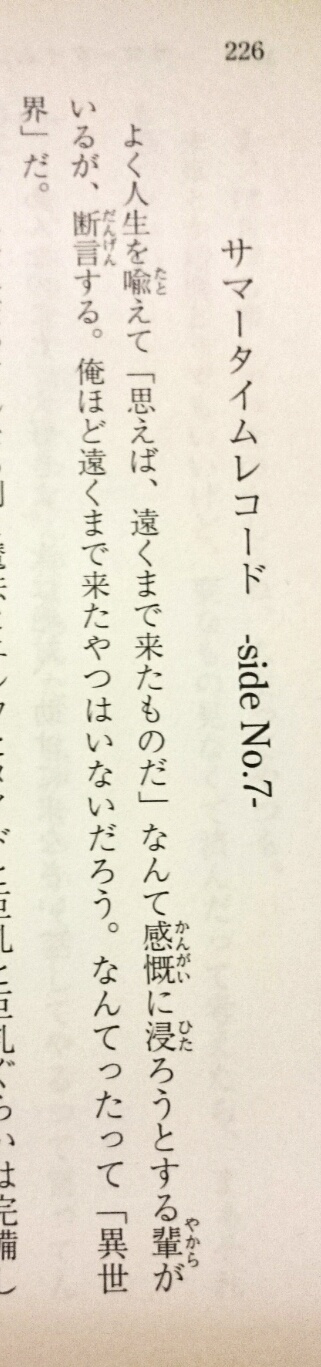 226
サマータイムレコード -side No.7-
よく人生を喩えて「思えば、遠くまで来たものだ」なんて感慨に浸ろうとする輩が
いるが、断言する。俺ほど遠くまで来たやつはいないだろう。なんてったって「異世
界」だ。